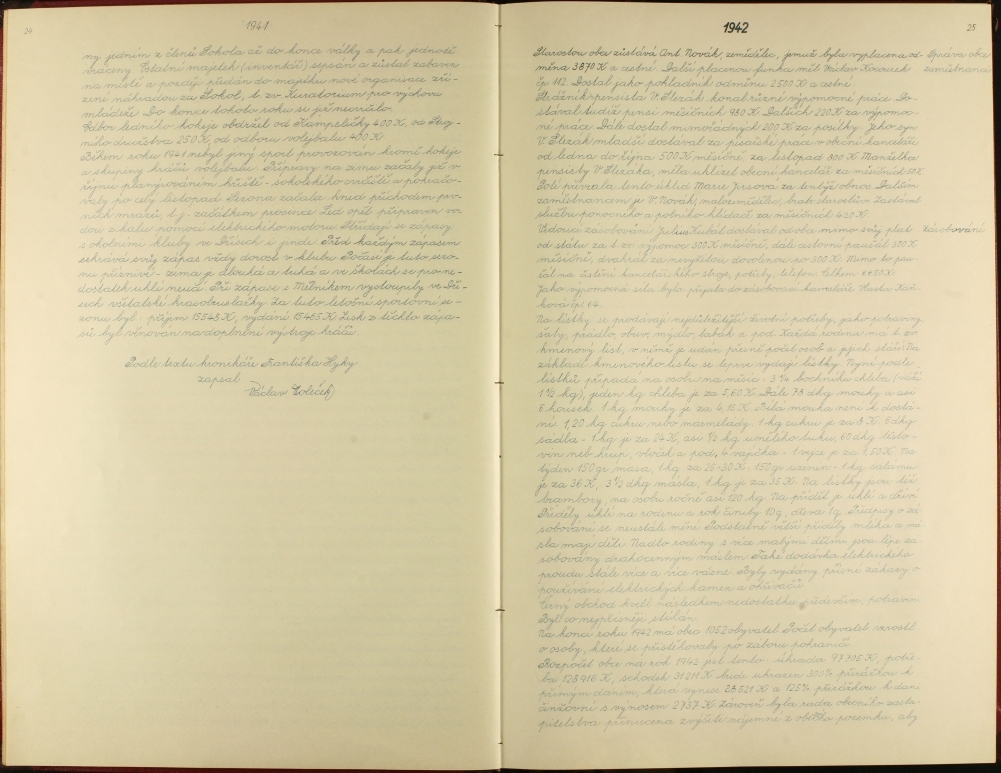 24
1941
ny jedním z členů Sokola až do konce války a pak jednotě
vráceny. Ostatní majetek (inventář) sepsán a zůstal zabaven
na místě a později předán do majetku nové organisace zří-
zené náhradou za Sokol, t. zv. Kuratorium pro výchovu
mládeže. Do konce tohoto roku se již necvičilo.
Odbor ledního hokeje obdržel od Kampeličky 400 K, od
družstva 250 K, od odboru volejbalu 400 K.
Během roku 1941 nebyl jiný sport provozován kromě hokeje
a skupiny hráčů volejbalu. Přípravy na zimu začaly již v
říjnu planýrováním hřiště - sokolského cvičiště a pokračo-
valy po celý listopad. Sezona začala hned příchodem prv-
ních mrazů, t. j. začátkem prosince. Led opět připraven vo-
dou z kalu pomocí elektrického motoru. Střídají se zápasy
s okolními kluby ve Dřísech i jinde. Před každým zápasem
sehrává svůj zápas vždy dorost v klubu. Počasí je tuto sezo-
nu příznivé - zima je dlouhá a tuhá a ve školách se pro ne-
dostatek uhlí neučí. Při zápase s Mělníkem vystoupily ve Dří-
sech všetatské krasobruslařky. Za tuto letošní sportovní se-
zonu byl: příjem 15548 K, vydání 15465 K. Zisk z těchto zápa-
sů byl věnován na doplnění výstroje hráčů.
Podle textu kronikáře Františka Hyky
zapsal
Václav Soleček
1942
25
Starostou obce zůstává Ant. Novák, zemědělec, jemuž byla vyplacena od-
Správa obce
měna 3870 K a cestné. Další placenou funkci měl Václav Kocourek
zaměstnanci
čp. 112. Dostal jako pokladník odměnu 2580 K a cestné.
Strážník-pensista V. Slezák, konal různé výpomocné práce. Do-
stával tudíž pensi měsíčních 980 K. Dalších 220 K za výpomoc-
né práce. Dále dostal mimořádných 200 K za posílky. Jeho syn
V. Slezák mladší dostával za písařské práce v obecní kanceláři
od ledna do října 500 K měsíčně, za listopad 800 K. Manželka
pensisty V. Slezáka, měla uklízet obecní kancelář za měsíčních 50 K.
Poté převzala tento úklid Marie Jirsová za tentýž obnos. Dalším
zaměstnancem je V. Novák, malozemědělec, bratr starostův. Zastával
službu ponocného a polního hlídače za měsíčních 420 K.
Vedoucí zásobování Julius Kubát dostával od obce mimo svůj plat
Zásobování
od státu za t. zv. výpomoc 300 K měsíčně, dále cestovní paušál 300 K
měsíčně, dvakrát za nevyžitou dovolenou po 300 K. Mimo to pau-
šál na čištění kancelářského stroje, potřeby, telefon. Celkem
Jako výpomocná síla byla přijata do zásobovací kanceláře Vlasta Kaň-
ková čp. 64.
Na lístky se prodávají nejdůležitější životní potřeby, jako potraviny
šaty, prádlo, obuv, mýdlo, tabák a pod. Každá rodina má t. zv.
kmenový list, v němž je udán přesně počet osob a jejich stáří. Na
základě kmenového listu se teprve vydají lístky. Nyní podle
lístků připadá na osobu na měsíc: 3 ¾ bochníku chleba (váží
1 ½ kg), jeden kg chleba je za 5,60 K. Dále 78 dkg mouky a asi
6 housek. 1 kg mouky je za 4,15 K. Bílá mouka není k dostá-
ní. 1,20 kg cukru nebo marmelády. 1 kg cukru je za 8 K. 6 dkg
sádla - 1 kg je za 24 K, asi ½ kg umělého tuku, 60 dkg těsto-
vin neb krup, vloček a pod., 4 vajíčka - 1 vejce je za 1,50 K. Na
týden 150 gr masa, 1 kg za 25-30 K. 150 gr uzenin - 1 kg salámu
je za 36 K, 3 ½ dkg másla, 1 kg je za 35 K. Na lístky jsou též
brambory, na osobu ročně asi 120 kg. Na příděl je uhlí a dříví.
Příděly uhlí na rodinu a rok činily 10 q, dřeva 1 q. Předpisy o zá-
sobování se neustále mění. Podstatně větší příděly mléka a má-
sla mají děti. Nadto rodiny s více malými dětmi jsou lépe zá-
sobovány drahocenným máslem. Také dodávka elektrického
proudu stále více a více vázne. Byly vydány přísné zákazy o
používání elektrických kamen a ohřívačů.
Černý obchod kvetl následkem nedostatku především potravin.
Byl co nejpřísněji stíhán.
Na konci roku 1942 má obec 1052 obyvatel. Počet obyvatel vzrostl
o osoby, které se přistěhovaly po záboru pohraničí.
Rozpočet obce na rok 1942 jest tento: úhrada 97705 K, potře-
ba 128916 K, schodek 31211 K bude uhrazen 300% přirážkou k
přímým daním, která vynese 28521 K a 125% přirážkou k dani
činžovní s výnosem 2737 K. Zároveň byla rada obecního zastu-
pitelstva přinucena zvýšiti nájemné z obecního pozemku, aby